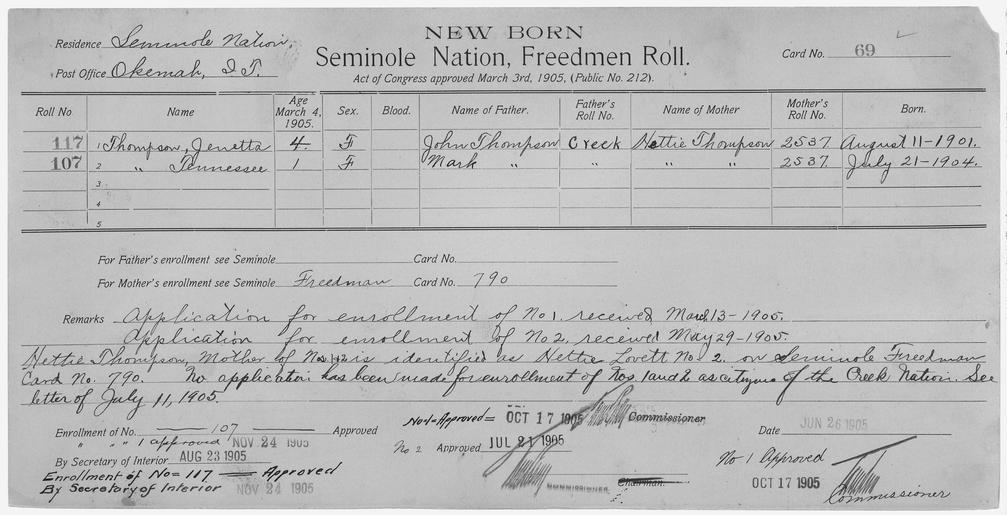 NEW BORN
Residence Seminole Nation,
Seminole Nation, Freedmen Roll.
Card No. 69
Post Office Okemah, I.T.
Act of Congress approved March 3rd, 1905, (Public No. 212).
Roll No Name Age March 4, 1905. Sex. Blood. Name of Father. Father's Roll No. Name of Mother Mother's Roll No. Born.
117 1 Thompson, Jenetta 4 F John Thompson Creek Hettie Thompson 2537 August 11-1901.
107 2 " Tennessee 1 F Mark " " " " 2537 July 21-1904.
3
4
5
For Father's enrollment see Seminole Card No.
For Mother's enrollment see Seminole Freedman Card No. 790
Remarks Application for enrollment of No 1, received March 13-1905.
Application for enrollment of No 2, received May 29-1905.
Hettie Thompson, Mother of Nos. 1&2 is identified as Hettie Lovett No. 2. on Seminole Freedman
Card No. 790. No application has been made for enrollment of Nos. 1 and 2 as citizens of the Creek Nation. See
letter of July 11, 1905.
No-1-Approved= OCT 17 1905 Commissioner
Enrollment of No. 107 Approved
Date JUN 26 1905
" " " 1 approved NOV 24 1905
No 2 Approved JUL 21 1905
By Secretary of Interior AUG 23 1905
No 1 Approved
Enrollment of No= 117 Approved
COMMISSIONER Chairman.
OCT 17 1905
By Secretary of Interior NOV 24 1905
Commissioner